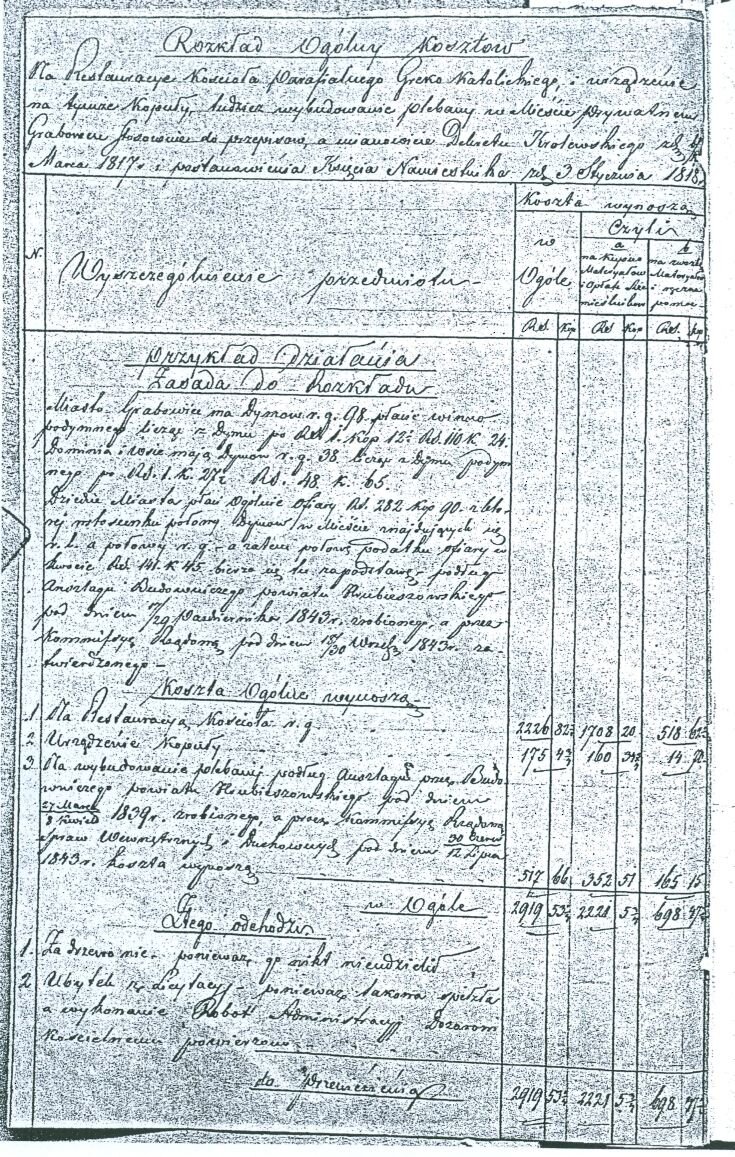 Rozkład Ogólny Kosztow
Na Restauracye Kościoła Parafialnego Greko Katolickiego, i urządzenie
na tymże Kopuły, tudzież wybudowanie plebany w Mieście Prywatnem
Grabowcu stosownie do przepisów, a mianowicie Dekretu Królewskiego
Marca 1817 r. i postanowienia Księcia Namiestnika 3 Stycznia 1818
Koszta wynoszą
w Ogóle
Czyli
a na kupno Materyałow i Opłatę Rzemieślników
b na zwozkę Materyałow i ręczna pomoc
N.
Wyszczególnienie przedmiotu
Rs. Kop Rs. Kop Rs. Kop
Przykład Działania
Zasada do Rozkładu
Miasto Grabowiec ma Dymow r. g. 98. płaci winno
podymnego licząc z Dymu po Rs. 1. Kop 12½ Rs. 110 K 24.
Dominia i Wsie mają Dymow r. g. 38. licząc z Dymu podym
nego po Rs. 1. K. 27½ Rs. 48. K. 65.
Miasta płaci Ogólnie ofiary Rs. 282 Kop 90. z któ
rej w stosunku połowy Dymow w Mieście znajdujących się
r. l. a połowy r. g. a zatem połowę podatku ofiary w
kwocie Rs. 141. K 45 bierze się tu za podstawę, podług
Anszlagu Budowniczego powiatu Hrubieszowskiego
pod dniem 17/29 Października 1843 r. zrobionego, a przez
Kommissyę Rządową pod dniem 18/30 1843 r. za
twierdzonego -
Koszta Ogólne wynoszą
1. Na Restauracyą Kościoła r. g. 2226 82½ 1708 20 518 62½
2 Urządzenie Kopuły 175 4½ 160 34½ 14
3. Na wybudowanie plebanij podług Anszlagu przez Budo
wniczego powiatu Hrubieszowskiego pod dniem
27 Marca / 8 Kwiet 1839 r. zrobionego, a przez Kommissyę Rządową
Spraw Wewnętrznych i Duchownych pod dniem 30 Czerw / 12 Lipca
1843 r. koszta wynoszą 517 66 352 51 165 15
w Ogóle 2919 53½ 2221 5½ 698
Z tego odchodzi
1. Za drzewo nic - ponieważ go nikt nieudzielił
2 Ubytek z Licytacyj - ponieważ takowa spełzła
a wykonanie Robot Administracyj Dozorom
Kościelnemu powierzono
do Przeniesienia 2919 53½ 2221 5½ 698